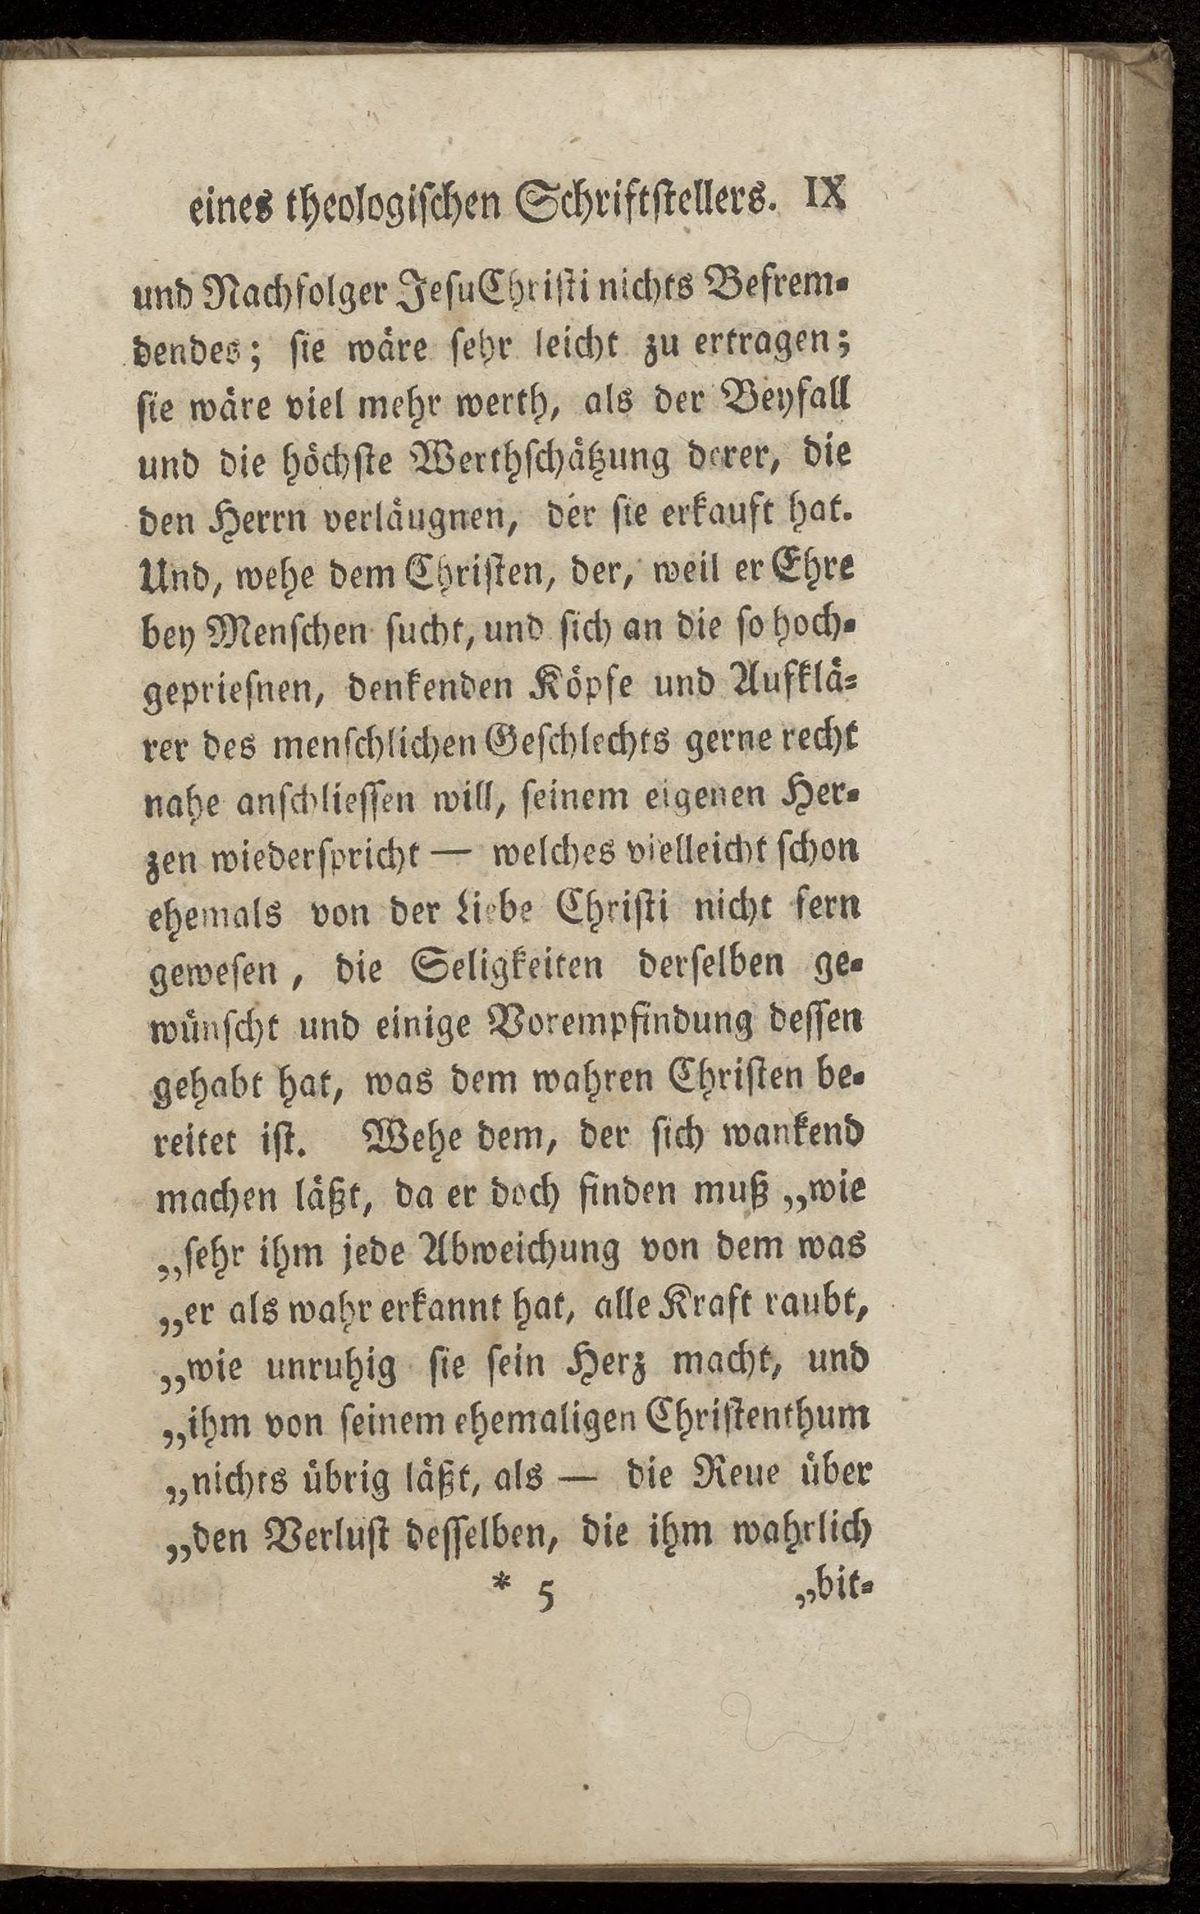 eines theologischen Schriftstellers. IX
und Nachfolger Jesu Christi nichts Befrem-
dendes; sie wäre sehr leicht zu ertragen;
sie wäre viel mehr werth, als der Beyfall
und die höchste Werthschätzung derer, die
den Herrn verläugnen, der sie erkauft hat.
Und, wehe dem Christen, der, weil er Ehre
bey Menschen sucht, und sich an die so hoch-
gepriesnen, denkenden Köpfe und Aufklä-
rer des menschlichen Geschlechts gerne recht
nahe anschliessen will, seinem eigenen Her-
zen wiederspricht — welches vielleicht schon
ehemals von der Liebe Christi nicht fern
gewesen, die Seligkeiten derselben ge-
wünscht und einige Vorempfindung dessen
gehabt hat, was dem wahren Christen be-
reitet ist. Wehe dem, der sich wankend
machen läßt, da er doch finden muß „wie
„sehr ihm jede Abweichung von dem was
„er als wahr erkannt hat, alle Kraft raubt,
„wie unruhig sie sein Herz macht, und
„ihm von seinem ehemaligen Christenthum
„nichts übrig läßt, als — die Reue über
„den Verlust desselben, die ihm wahrlich
* 5 „bit-